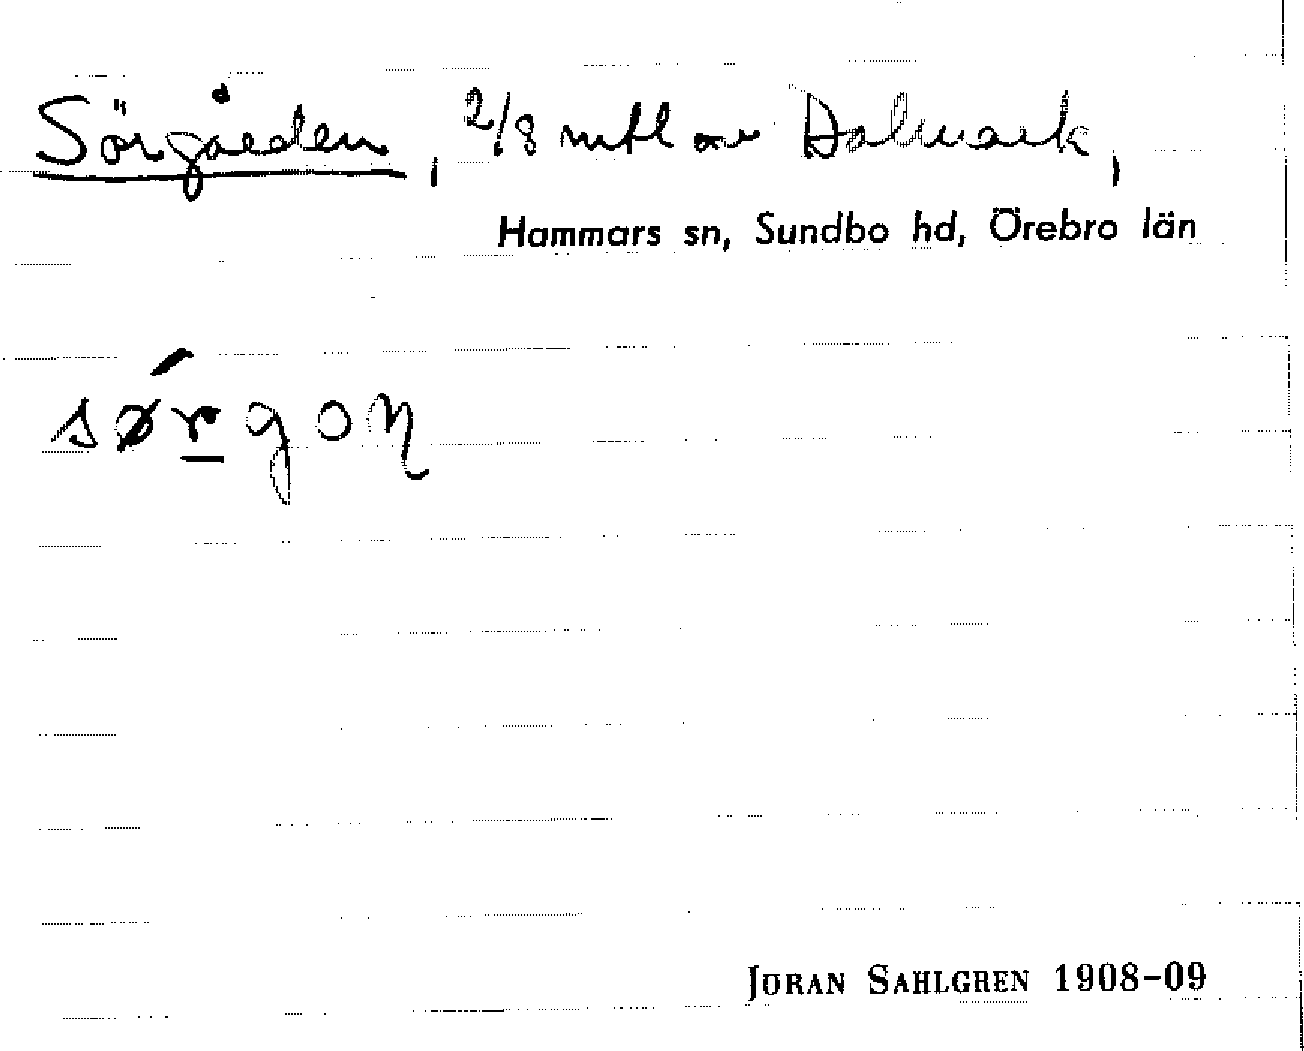 Sörgården, 2/8 mtl av Dalmark,
Hammars sn, Sundbo hd, Örebro län
sǿrgoɳ
JÖRAN SAHLGREN 1908-09